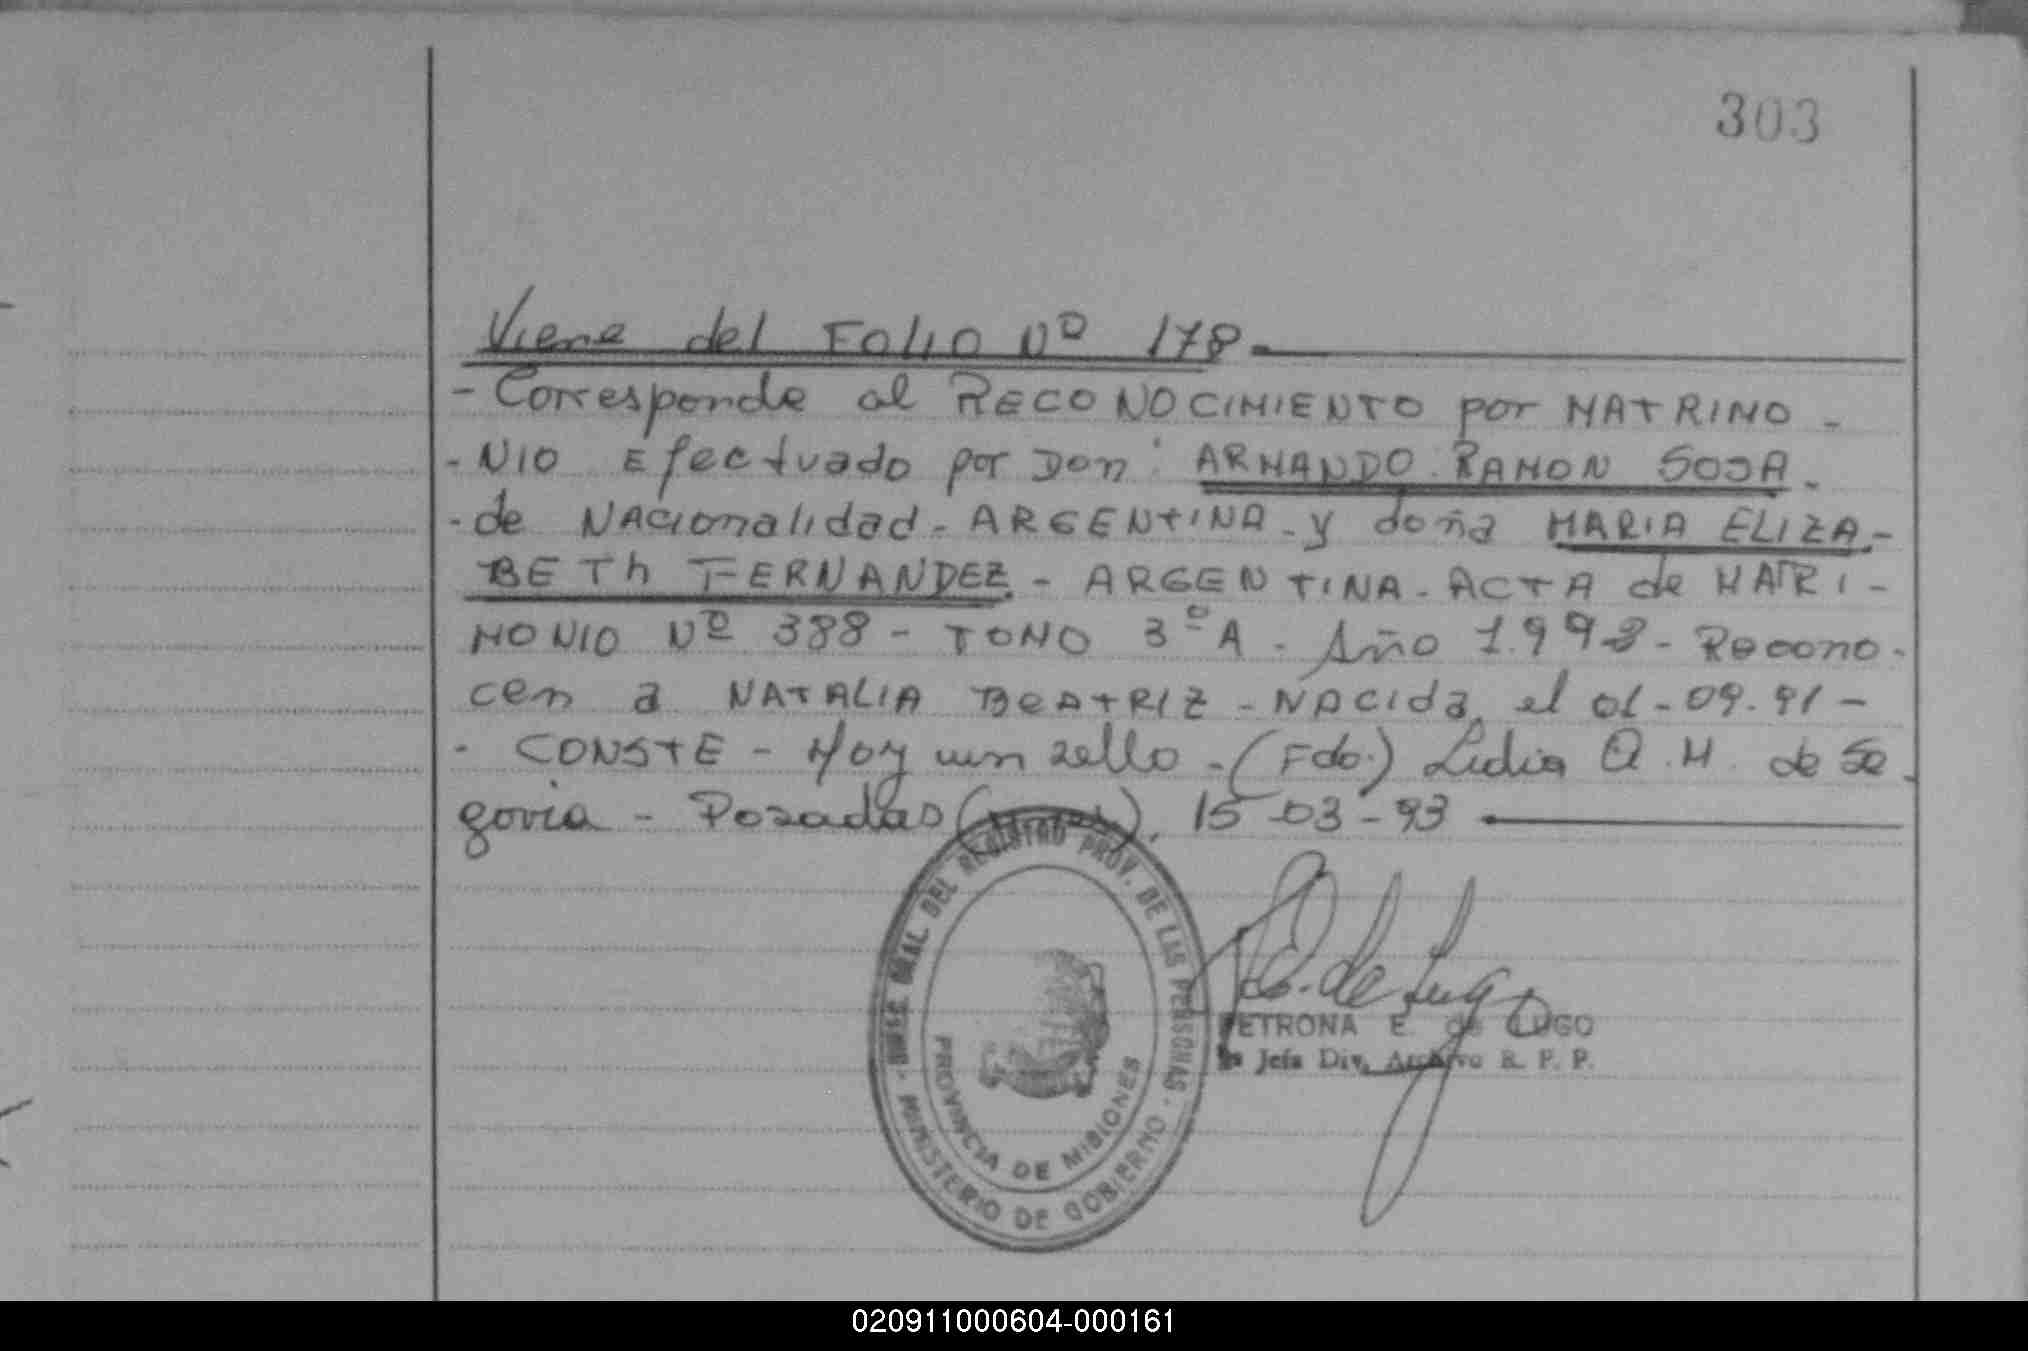 303
Viene del FOLIO Nº 178.-
- Corresponde al RECONOCIMIENTO por MATRIMO -
- NIO Efectuado por Don: ARMANDO RAMON SOSA.
- de NAcionalidad - ARGENTINA - y doña MARIA ELIZA-
BETh FERNANDEZ. - ARGENTINA. ACTA de MATRI -
MONIO Nº 388 - TOMO 3º A - Año 1.992 - Recono-
cen a NATALIA BeATRIZ - NAcida, el 01-09-91 -
- CONSTE - Hoy un sello - (Fdo.) Lidia Q. H. de Se
govia - Posadas ( ), 15-03-93
DIREC. GRAL. DEL REGISTRO PROV. DE LAS PERSONAS - MINISTERIO DE GOBIERNO -
PROVINCIA DE MISIONES
de Lugo
PETRONA E. de LUGO
Jefa Div. Archivo R. P. P.
020911000604-000161